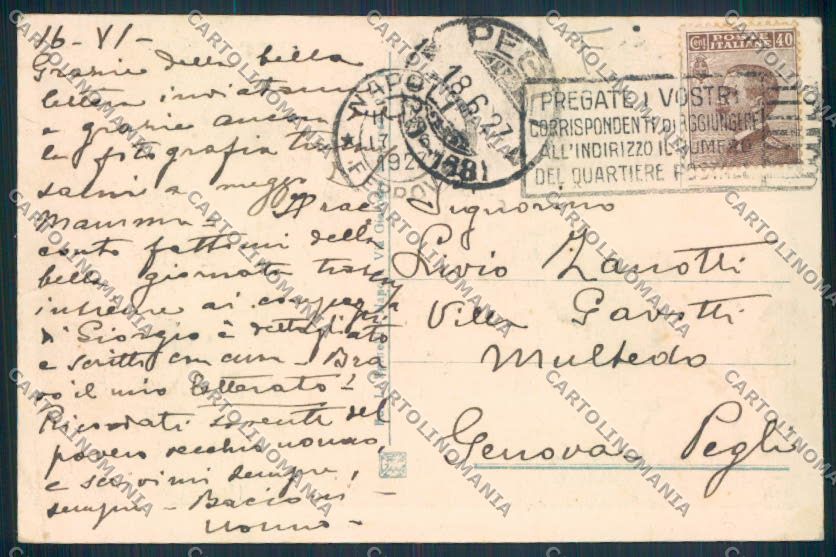 16 - VI -
Grazie della bella
lettera inviatami
e grazie ancora
la fotografia
a mezzo
Mamma -
conto fattomi della
bella giornata
insieme ai
di Giorgio è dettagliato
e scritto con cura - Bra
vo il mio letterato!
Ricordati sovente del
povero vecchio nonno,
e scrivimi sempre,
sempre - Bacioni
nonno -
NAPOLI
1927
FERROVIA
PEGLI
18.6.27
PREGATE I VOSTRI
CORRISPONDENTI DI AGGIUNGERE
ALL'INDIRIZZO IL NUMERO
DEL QUARTIERE POSTALE
Cent. POSTE 40
ITALIANE
Signorino
Livio Zanotti
Villa Gavotti
Multedo
Genova - Pegli
CARTOLINOMANIA